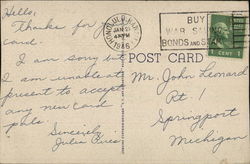 Hello,
Thanks for
card.
I am sorry but
I am unable at
present to accept
any new card
pals.
Sincerely
Julia
HONOLULU
JAN
4 PM
1946
BUY
WAR
BONDS AND
POST CARD
1¢
Mr. John Leonard
Rt. 1
Springport
Michigan